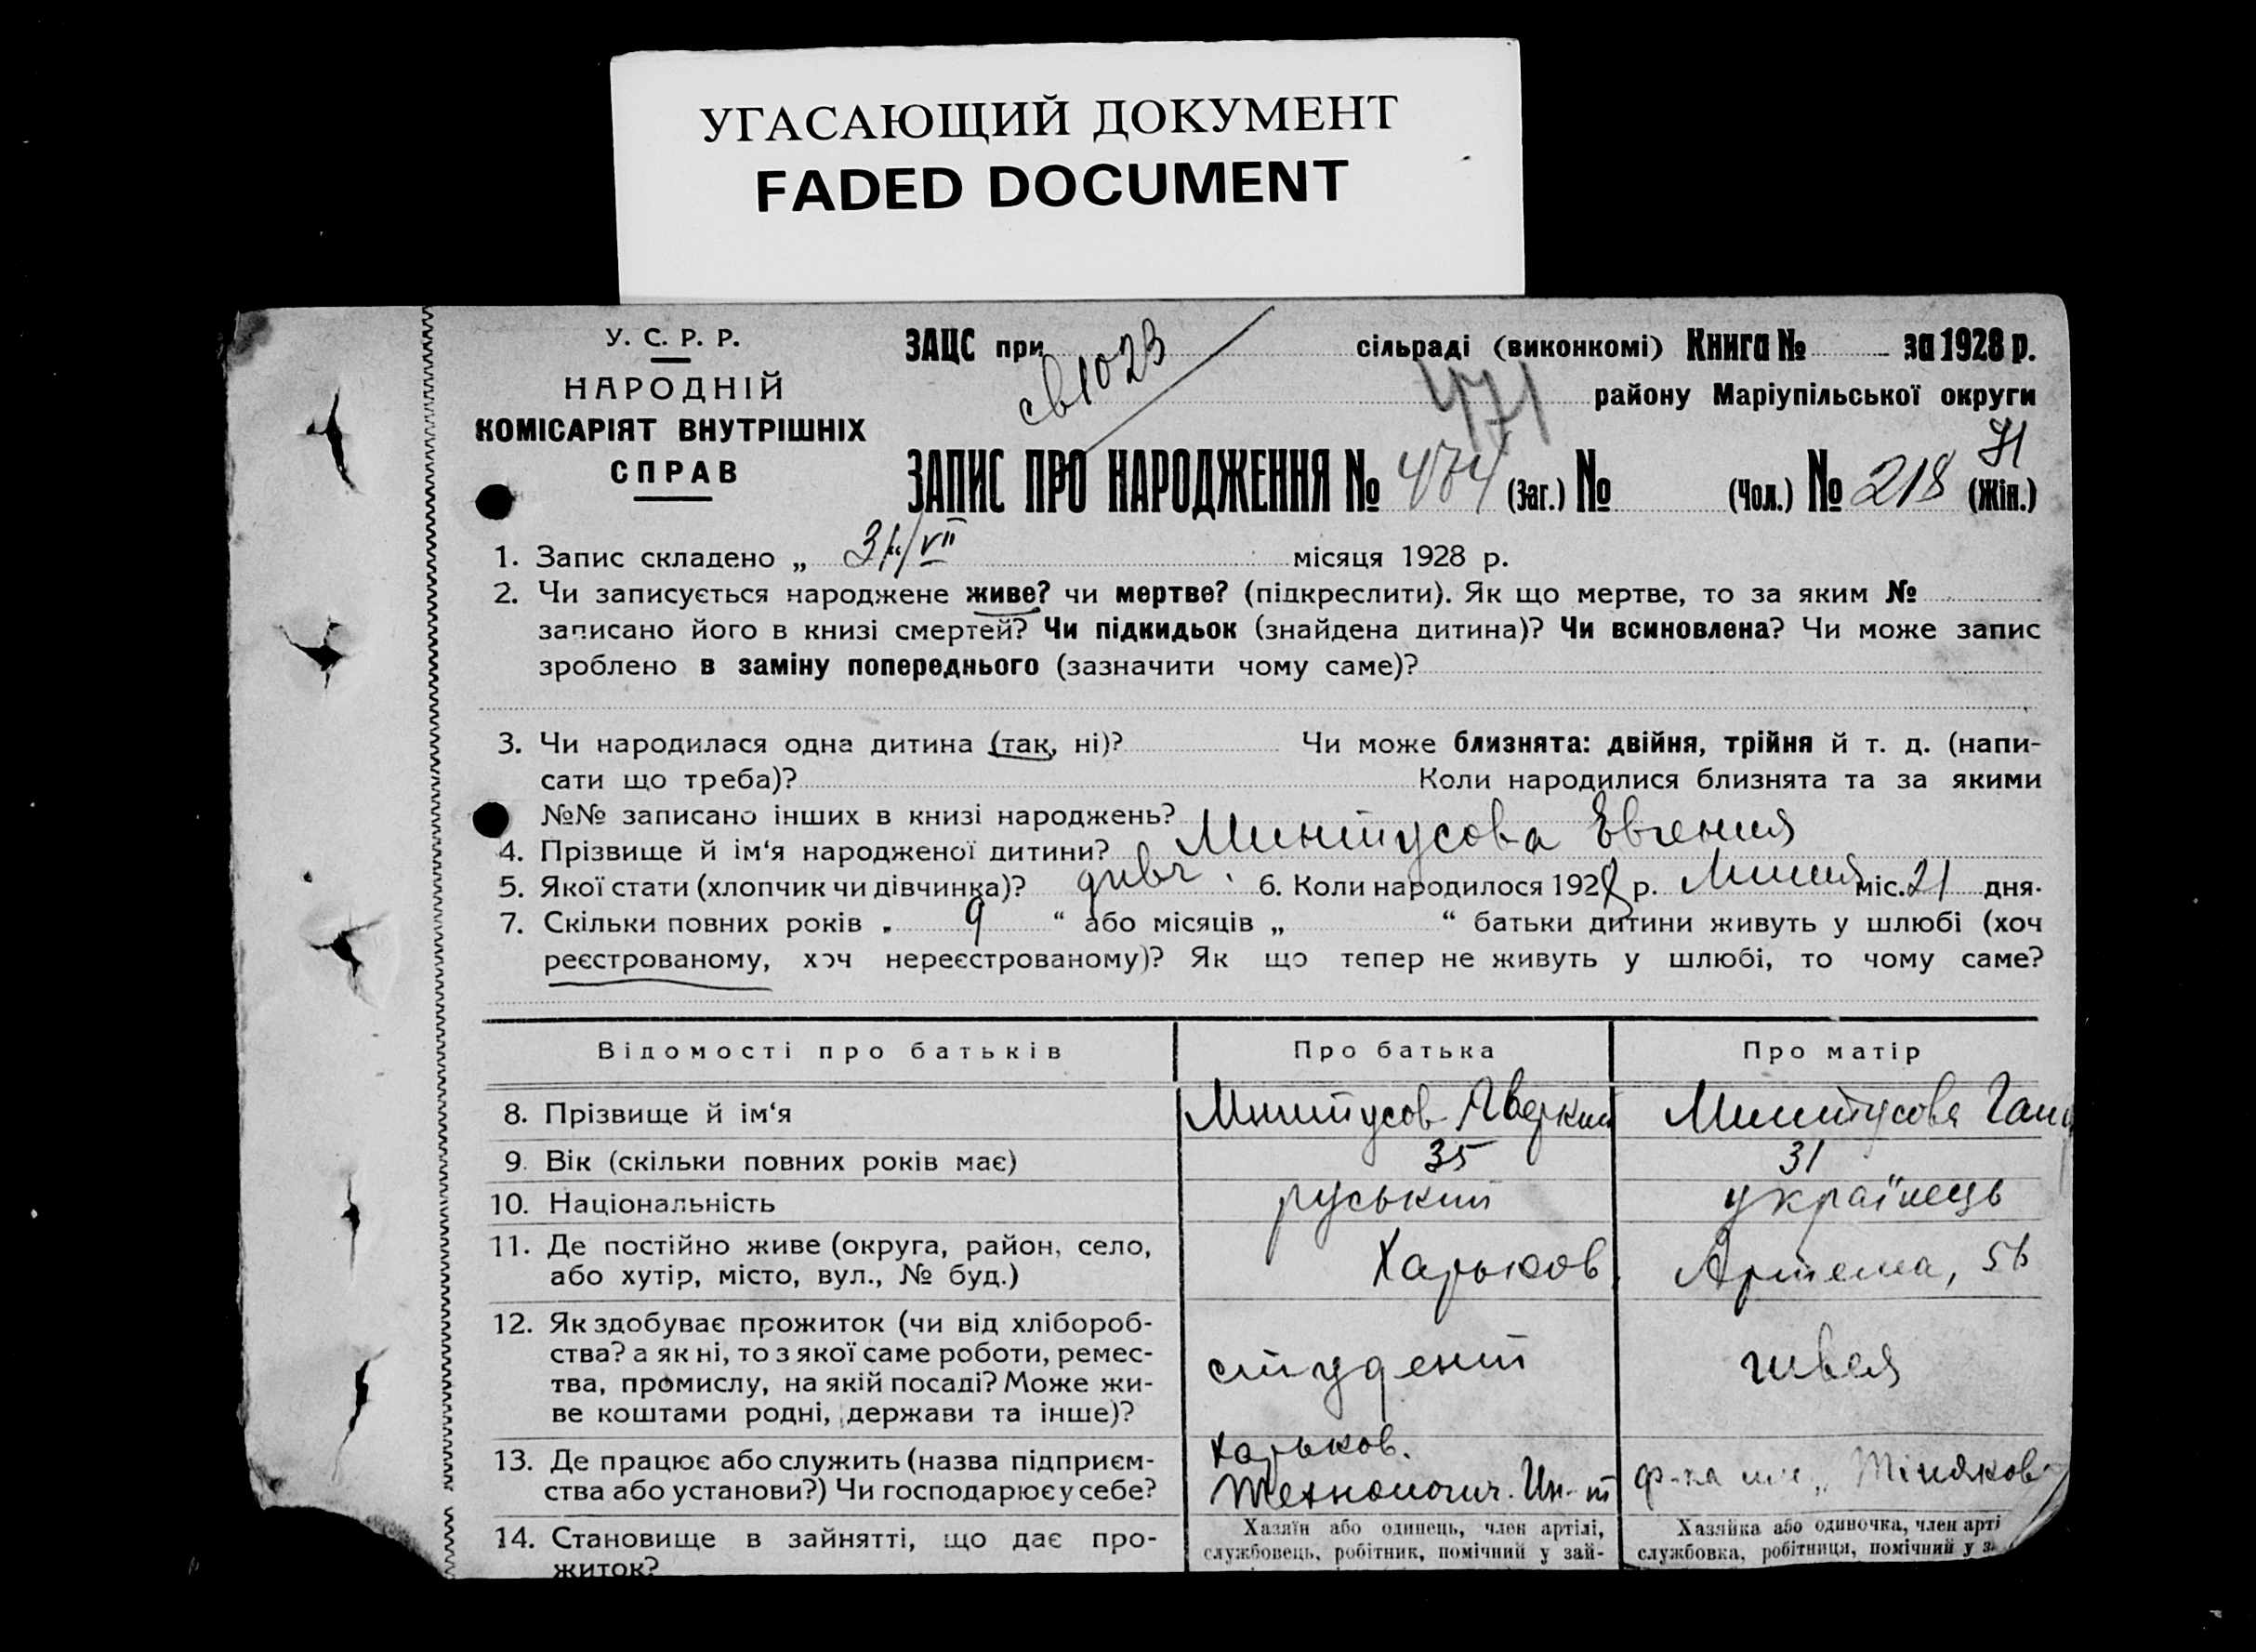 УГАСАЮЩИЙ ДОКУМЕНТ
FADED DOCUMENT
У. С. Р. Р.
НАРОДНІЙ
КОМІСАРІЯТ ВНУТРІШНІХ
СПРАВ
ЗАЦС при сільраді (виконкомі) Книга № за 1928 р.
св 1023
471 району Маріупільської округи
ЗАПИС ПРО НАРОДЖЕННЯ № 474 (Заг.) № (Чол.) № 218 (Жін.)
1. Запис складено „ 31/VII “ місяця 1928 р.
2. Чи записується народжене живе? чи мертве? (підкреслити). Як що мертве, то за яким №
записано його в книзі смертей? Чи підкидьок (знайдена дитина)? Чи всиновлена? Чи може запис
зроблено в заміну попереднього (зазначити чому саме)?
3. Чи народилася одна дитина (так, ні)? Чи може близнята: двійня, трійня й т. д. (напи-
сати що треба)? Коли народилися близнята та за якими
№№ записано інших в книзі народжень?
4. Прізвище й ім‘я народженої дитини? Минтусова Евгения
5. Якої стати (хлопчик чи дівчинка)? дивч. 6. Коли народилося 1928 р. Липня міс. 21 дня.
7. Скільки повних років „ 9 “ або місяців „ “ батьки дитини живуть у шлюбі (хоч
реєстрованому, хоч нереєстрованому)? Як що тепер не живуть у шлюбі, то чому саме?
Відомості про батьків Про батька Про матір
8. Прізвище й ім‘я Минтусов Аверкий Минтусова
9. Вік (скільки повних років має) 35 31
10. Національність руський українець
11. Де постійно живе (округа, район, село,
або хутір, місто, вул., № буд.) Харьков, Артема, 56
12. Як здобуває прожиток (чи від хлібороб-
ства? а як ні, то з якої саме роботи, ремес-
тва, промислу, на якій посаді? Може жи-
ве коштами родні, держави та інше)? студент швея
13. Де працює або служить (назва підприєм-
ства або установи?) Чи господарює у себе? Харьков. Технологич. Ин-т ф-ка им. „Тінякова
14. Становище в зайнятті, що дає про-
житок?
Хазяїн або одинець, член артілі,
службовець, робітник, помічний у зай-
Хазяйка або одиночка, член арті
службовка, робітниця, помічний у за